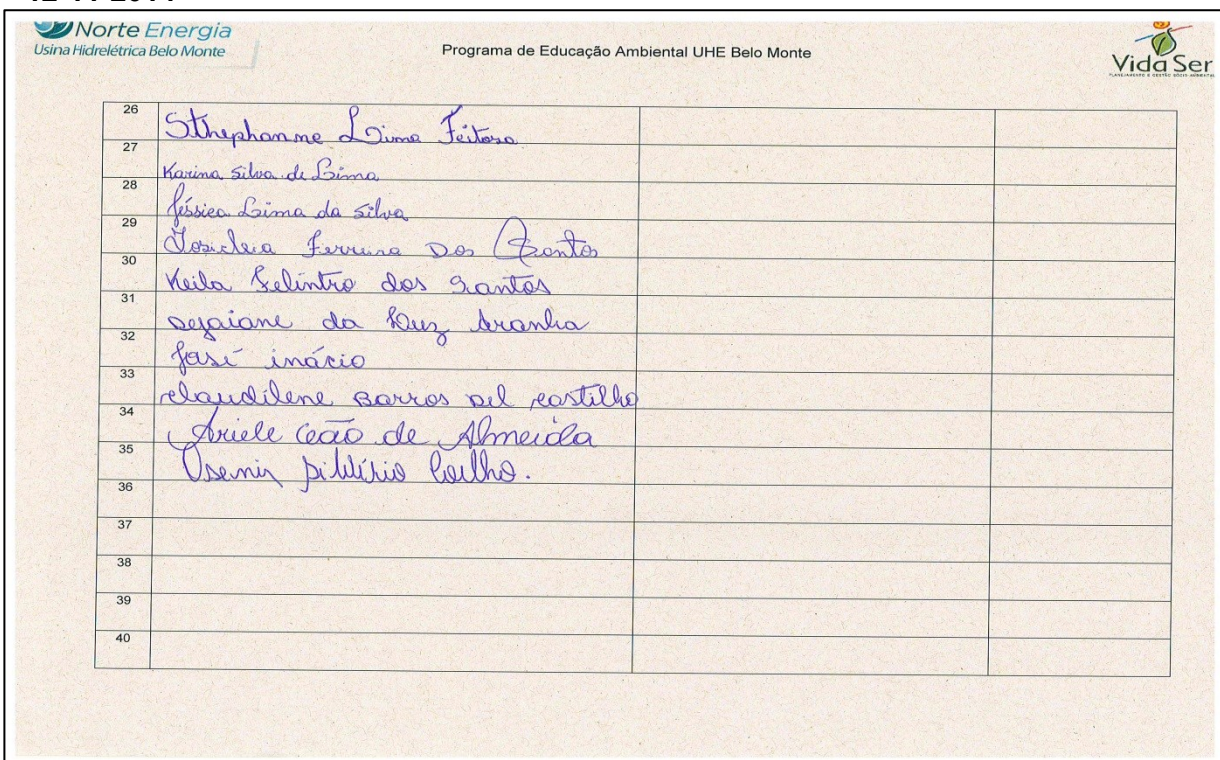 Norte Energia
Usina Hidrelétrica Belo Monte
Programa de Educação Ambiental UHE Belo Monte
Vida Ser
26 Sthephanne Lima Feitosa
27 Karina Silva de Lima
28 Jéssica Lima da Silva
29 Josicleia Ferreira Dos Santos
30 Keila Felintro dos Santos
31 da Luz Aranha
32 José inácio
33 claudilene Barros del castilho
34 Ariele Leão de Almeida
35 Osenir Coelho.
36
37
38
39
40